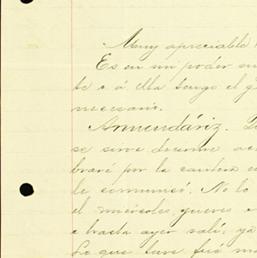 Muy apreciable
Es en mi poder su
te á ella tengo el g
necesario.
Armendáriz.
se sirve decirme
braré por la cantera
le comunicó. No lo
el miércoles, jueves
hasta ayer salí, ya
Lo que tuve fué m